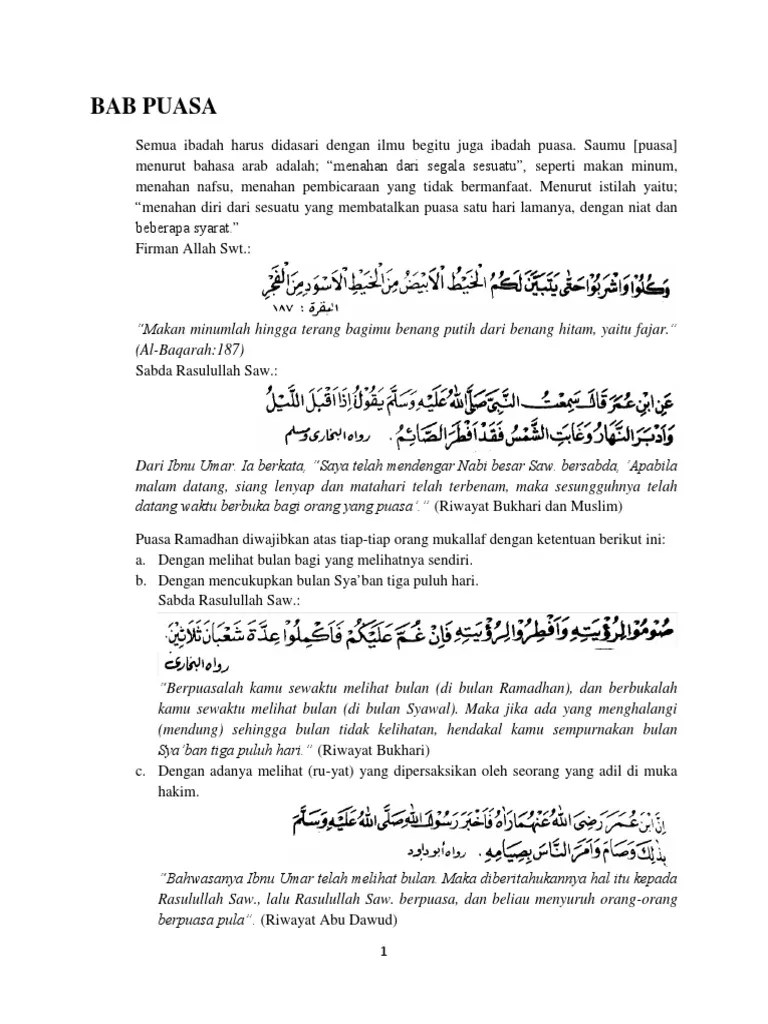 BAB PUASA
Semua ibadah harus didasari dengan ilmu begitu juga ibadah puasa. Saumu [puasa]
menurut bahasa arab adalah; “menahan dari segala sesuatu”, seperti makan minum,
menahan nafsu, menahan pembicaraan yang tidak bermanfaat. Menurut istilah yaitu;
“menahan diri dari sesuatu yang membatalkan puasa satu hari lamanya, dengan niat dan
beberapa syarat.”
Firman Allah Swt.:
وَكُلُوْا وَاشْرَبُوْا حَتّٰى يَتَبَيَّنَ لَكُمُ الْخَيْطُ الْاَبْيَضُ مِنَ الْخَيْطِ الْاَسْوَدِ مِنَ الْفَجْرِ
البقرة : ١٨٧
“Makan minumlah hingga terang bagimu benang putih dari benang hitam, yaitu fajar.“
(Al-Baqarah:187)
Sabda Rasulullah Saw.:
عَنِ ابْنِ عُمَرَ قَالَ سَمِعْتُ النَّبِيَّ صَلَّى اللهُ عَلَيْهِ وَسَلَّمَ يَقُوْلُ اِذَا اَقْبَلَ اللَّيْلُ
وَاَدْبَرَ النَّهَارُ وَغَابَتِ الشَّمْسُ فَقَدْ اَفْطَرَ الصَّائِمُ. رواه البخارى ومسلم
Dari Ibnu Umar. Ia berkata, “Saya telah mendengar Nabi besar Saw. bersabda, ‘Apabila
malam datang, siang lenyap dan matahari telah terbenam, maka sesungguhnya telah
datang waktu berbuka bagi orang yang puasa‘.“ (Riwayat Bukhari dan Muslim)
Puasa Ramadhan diwajibkan atas tiap-tiap orang mukallaf dengan ketentuan berikut ini:
a. Dengan melihat bulan bagi yang melihatnya sendiri.
b. Dengan mencukupkan bulan Sya’ban tiga puluh hari.
Sabda Rasulullah Saw.:
صُوْمُوْا لِرُؤْيَتِهِ وَاَفْطِرُوْا لِرُؤْيَتِهِ فَاِنْ غُمَّ عَلَيْكُمْ فَاَكْمِلُوْا عِدَّةَ شَعْبَانَ ثَلَاثِيْنَ.
رواه البخارى
“Berpuasalah kamu sewaktu melihat bulan (di bulan Ramadhan), dan berbukalah
kamu sewaktu melihat bulan (di bulan Syawal). Maka jika ada yang menghalangi
(mendung) sehingga bulan tidak kelihatan, hendakal kamu sempurnakan bulan
Sya‘ban tiga puluh hari.“ (Riwayat Bukhari)
c. Dengan adanya melihat (ru-yat) yang dipersaksikan oleh seorang yang adil di muka
hakim.
اِنَّ ابْنَ عُمَرَ رَضِيَ اللهُ عَنْهُمَا رَاٰهُ فَاَخْبَرَ رَسُوْلَ اللهِ صَلَّى اللهُ عَلَيْهِ وَسَلَّمَ
بِذٰلِكَ وَصَامَ وَاَمَرَ النَّاسَ بِصِيَامِهِ. رواه أبو داود
“Bahwasanya Ibnu Umar telah melihat bulan. Maka diberitahukannya hal itu kepada
Rasulullah Saw., lalu Rasulullah Saw. berpuasa, dan beliau menyuruh orang-orang
berpuasa pula“. (Riwayat Abu Dawud)
1